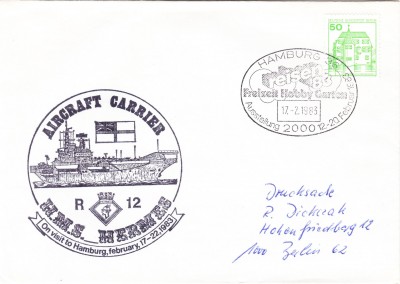 50
HAMBURG 36
Reisen
Freizeit Hobby Garten
17.-2.1983
Ausstellung 2000 12.-20.Februar
AIRCRAFT CARRIER
R 12
H.M.S. HERMES
On visit to Hamburg, february, 17-22, 1983
Drucksache
R.
Hohenfriedberg 12
1000 Berlin 62